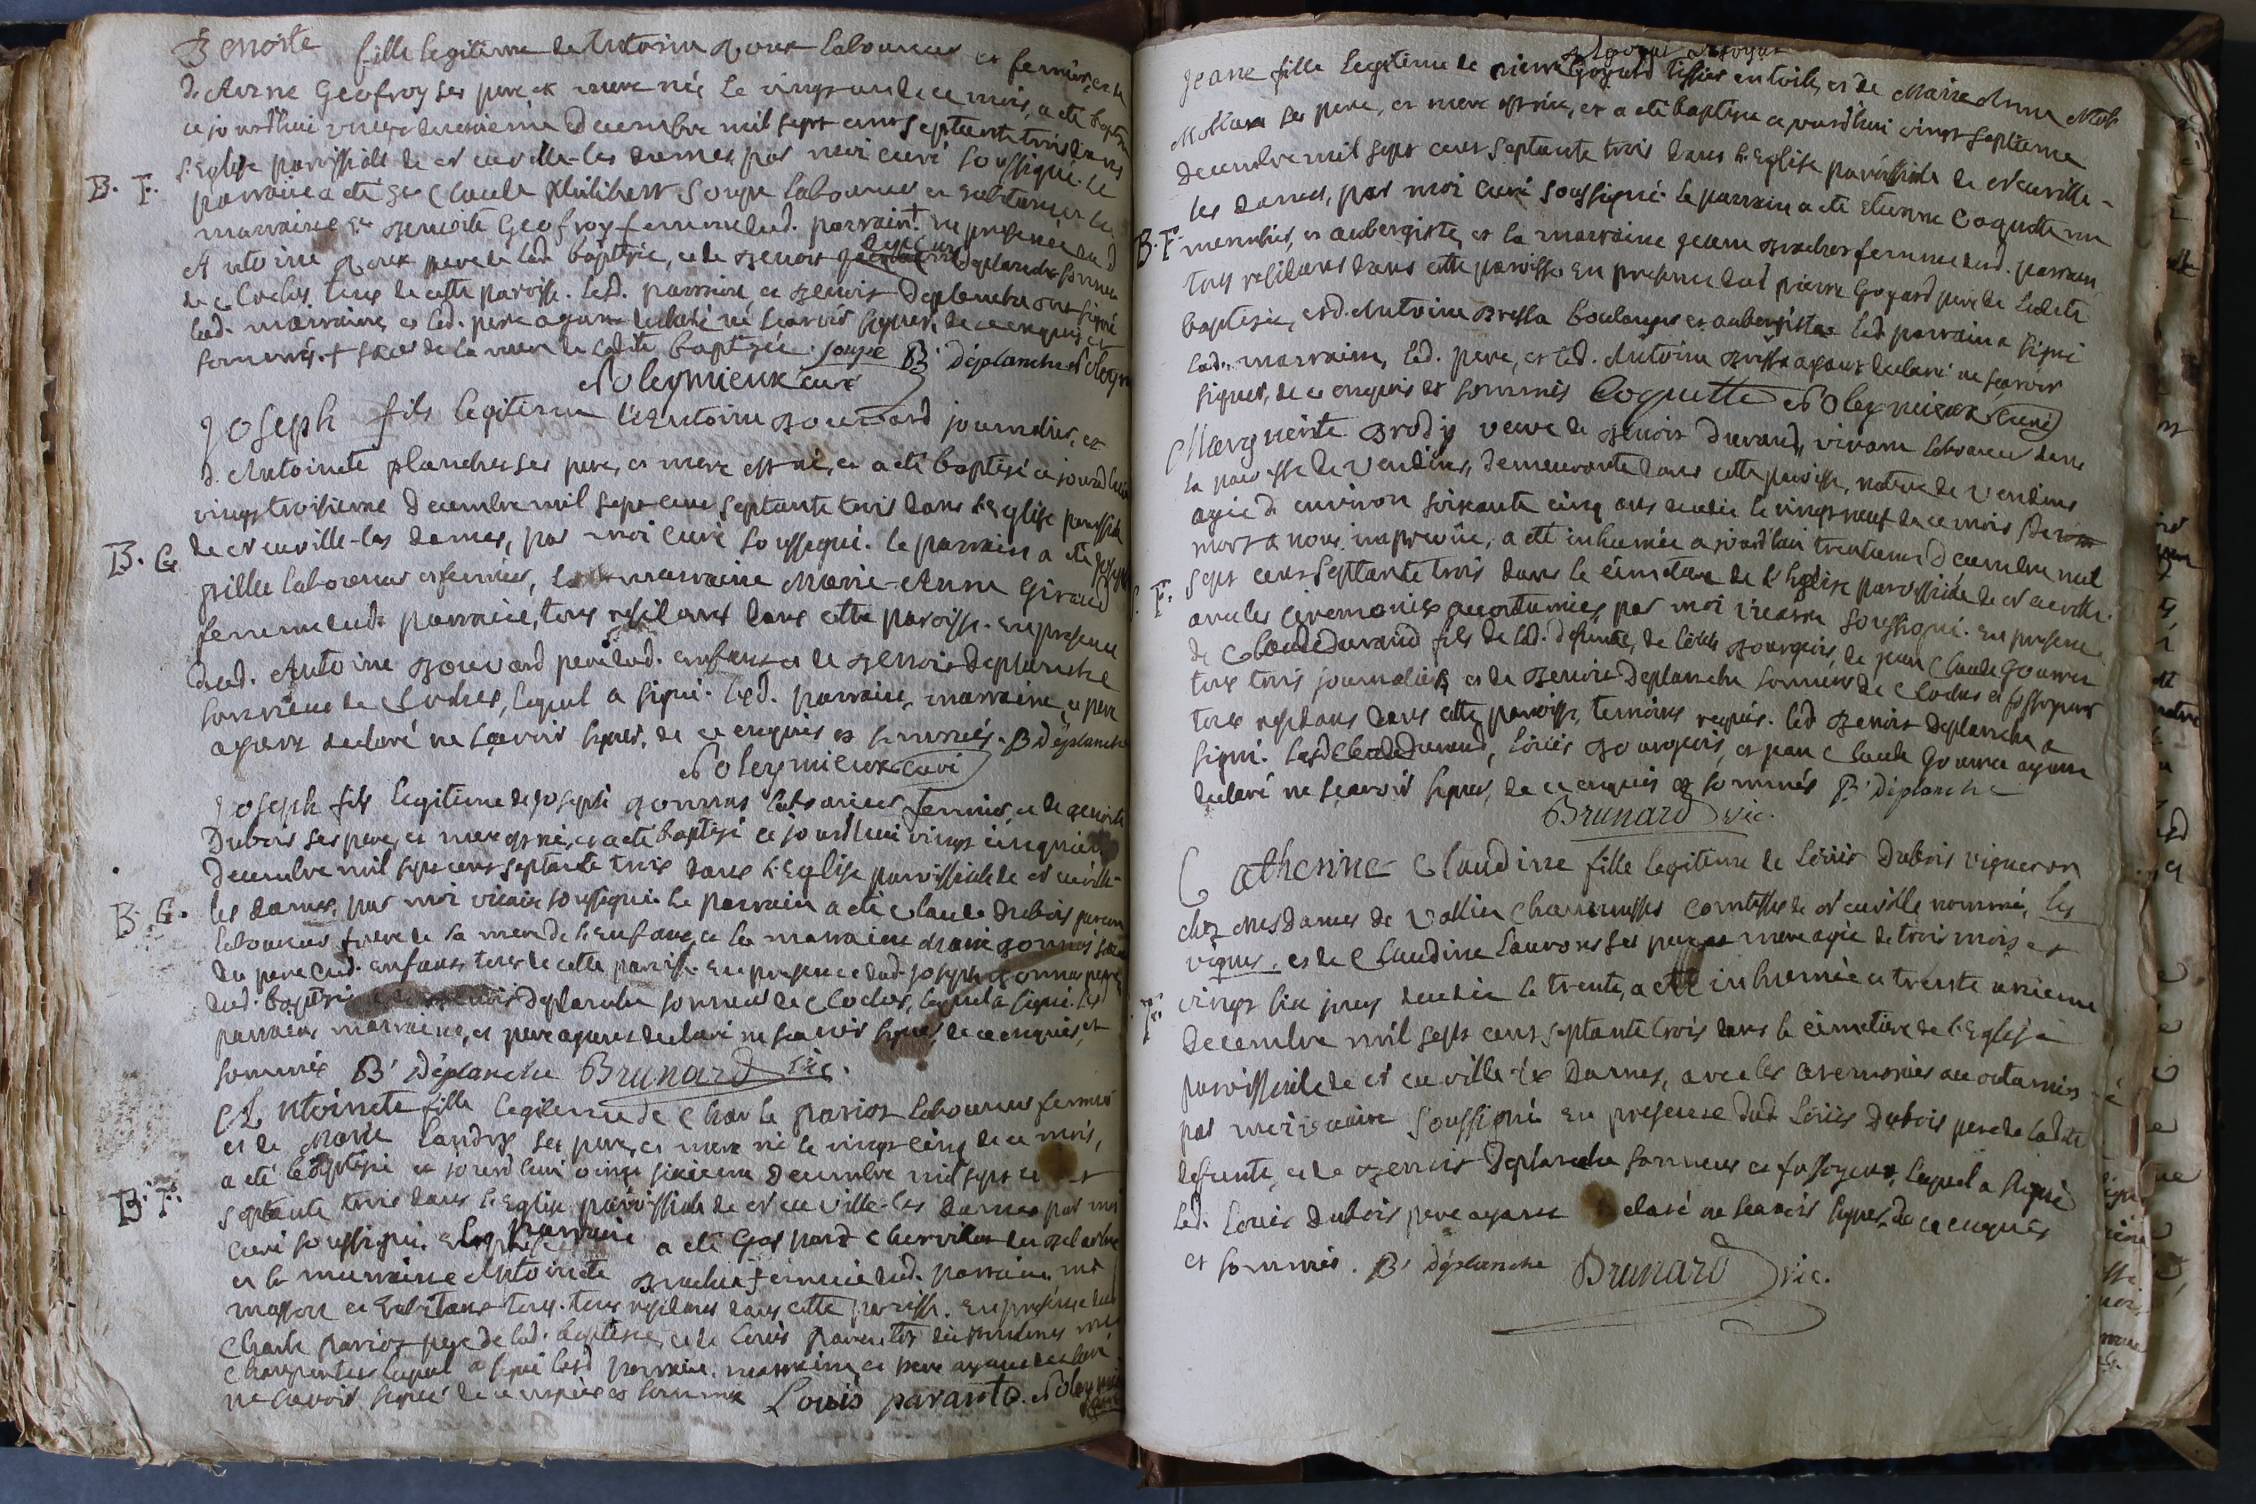 Benoite fille legitime de Antoine Roux laboureur et fermier, et
d'Anne Geofroy ses pere et mere née le vingt un de ce mois, a eté baptisée
ce jourd'huy vingt deuxieme decembre mil sept cent septante trois dans
l'Eglise parroissiale de Neuville-les dames, par moi curé soussigné. le
B. F.
parrain a eté Sr Claude Philibert Soupe laboureur et la
marraine Benoite Geofroy femme dud. parrain. + en presence dud
Antoine Roux pere de lad. baptisée, et de Benoit Deplanche sonneur
de cloches tous de cette paroisse. led. parrain et Benoit Deplanche ont signé
lad. marraine, et led. pere ayant declaré ne sçavoir signer, de ce enquis et
sommés. + de la mere de ladite baptisée. Soupe B. deplanche
Noleymieux curé
Joseph fils legitime d'Antoine Bouvard journalier, et
d'Antoinete planche ses pere, et mere est né, et a eté baptisé ce jourd'hui
vingt troisieme decembre mil sept cent septante trois dans l'Eglise paroissiale
de Neuville-les dames, par moi curé soussigné. le parrain a eté Joseph
B. G.
pillle laboureur et fermier, la marraine Marie-Anne Giraud
femme dud. parrain, tous residents dans cette paroisse. en presence
dud. Antoine Bouvard pere dud. enfant et de Benoit Deplanche
sonneur de Cloches, lequel a signé. led. parrain, marraine, et pere
ayant declaré ne sçavoir signer, de ce enquis et sommés. B deplanche
Noleymieux curé
Joseph fils legitime de Joseph Gonnus laboureur fermier, et de Benoite
Dubois ses pere, et mere est né, et a eté baptisé ce jourd'hui vingt cinquieme
decembre mil sept cent septante trois dans l'Eglise paroissiale de Neuville-
B. G.
les dames, par moi vicaire soussigné. le parrain a eté Claude Dubois garcon
laboureur frere de la mere de l'enfant, et la marraine Marie Gonnus
du pere dud. enfant tous de cette paroisse. en presence dud. Joseph Gonnus pere
dud. baptisé Deplanche sonneur de Cloches, lequel a signé. led
parrain, marraine, et pere ayant declaré ne sçavoir signer, de ce enquis, et
sommés B' Déplanche Brunard vic.
Antoinete fille legitime de Charle pariot laboureur fermier
et de Marie Landry ses pere, et mere né le vingt cinq de ce mois,
a eté baptisé ce jourd'hui vingt sixieme decembre mil sept cent
B. F.
septante trois dans l'Eglise paroissiale de Neuville-les dames par moi
curé soussigné. le parrain a eté Gaspard
et la marraine Antoinete femme dud. parrain
masson et tous residens dans cette paroisse. en presence dud
Charle pariot pere de lad. baptisée, et de Louis
charpentier lequel a signé led parrain, marraine, et pere ayant declaré
ne sçavoir signer de ce enquis et sommés Louis parant. Noleymieux
curé
Jeane fille legitime de pierre Goyard tissier en toile, et de Marie Anne
Mollard ses pere, et mere est née, et a eté baptisée ce jourd'hui vingt septieme
decembre mil sept cent septante trois dans l'Eglise paroissiale de Neuville-
les dames, par moi curé soussigné. le parrain a eté etienne Coquette
B. F.
menusier, et aubergiste, et la marraine Jeane femme dud. parrain
tous residens dans cette paroisse. en presence dud pierre Goyard pere de ladite
baptisée, et d'Antoine Bressa boulanger et aubergiste. led parrain a signé
lad. marraine, led. pere, et led. Antoine Bressa ayant declaré ne sçavoir
signer, de ce enquis et sommés Coquette Noleymieux curé
Marguerite Brodi veuve de Benoit Durand, vivant laboureur dans
la paroisse de Vendins, demeurante dans cette paroisse, native de Vendins
agée d'environ soixante cinq ans decedée le vingt neuf de ce mois
mort a nous imprevue, a eté inhumée ce jourd'hui trentieme decembre mil
F.
sept cent septante trois dans le cimetiere de l'Eglise paroissiale de Neuville.
avec les ceremonies accoutumées, par moi vicaire soussigné. en presence
de Claude Durand fils de lad. defunte, de Loüis Bourgeois, de jean Claude Gourrer
tous trois journaliers, et de Benoit Deplanche sonneur de Cloches et fossoyeur
tous residans dans cette paroisse, temoins requis. led Benoit Deplanche a
signé. lesd Claude Durand, Loüis Bourgeois, et jean Claude Gourrer ayant
declaré ne sçavoir signer, de ce enquis et sommés B' déplanche
Brunard vic.
Catherine Claudine fille legitime de Loüis Dubois vigneron
chez Mesdames de Vallin Chanoinesses Comtesses de Neuville nommé, les
vignes, et de Claudine Laurons ses pere et mere agée de trois mois et
F.
vingt six jours decedée le trente, a eté inhumée ce trente unieme
decembre mil sept cent septante trois dans le cimetiere de l'Eglise
paroissiale de Neuville-les Dames, avec les ceremonies accoutumées
par moi vicaire soussigné en presence dud Loüis Dubois pere de ladite
defunte, et de Benoit Deplanche sonneur et fossoyeur, lequel a signé
led. Louis Dubois pere ayant declaré ne sçavoir signer, de ce enquis
et sommés. B' déplanche Brunard vic.